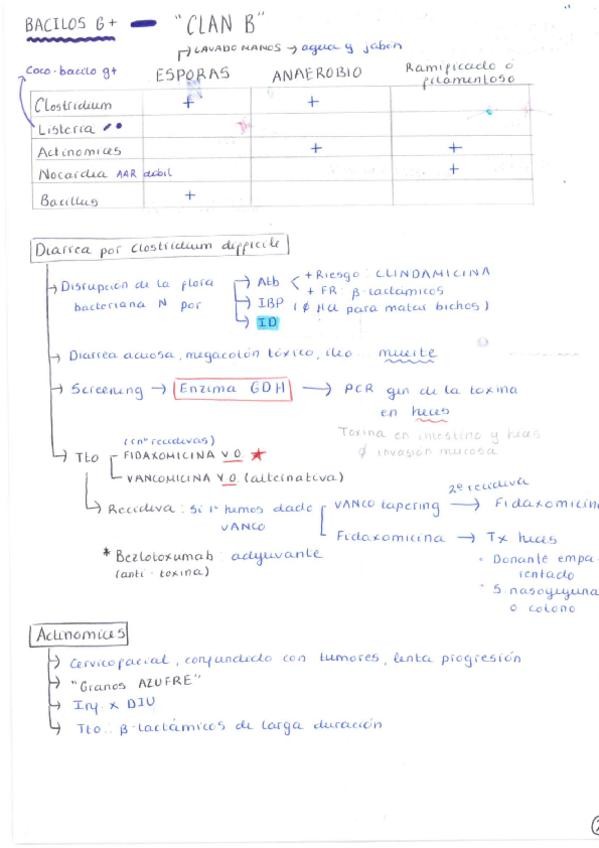 BACILOS G+ — "CLAN B"
↱ LAVADO MANOS → agua y jabón
Coco-bacilo g+ ESPORAS ANAEROBIO Ramificado o filamentoso
Clostridium + +
Listeria
Actinomices + +
Nocardia AAR débil +
Bacillus +
Diarrea por Clostridium difficile
→ Disrupción de la flora → Atb < + Riesgo: CLINDAMICINA
+ FR: β-lactámicos
bacteriana N por → IBP (∅ HCl para matar bichos)
→ ID
→ Diarrea acuosa, megacolon tóxico, íleo ... muerte
→ Screening → Enzima GDH → PCR gen de la toxina
en heces
Toxina en intestino y heces
∅ invasión mucosa
(↓nº recidivas)
→ Tto FIDAXOMICINA VO ★
VANCOMICINA VO (alternativa)
2ª recidiva
→ Recidiva: Si 1º hemos dado VANCO tapering → Fidaxomicina
VANCO
Fidaxomicina → Tx heces
* Bezlotoxumab: adyuvante
(anti-toxina)
• Donante empa-
rentado
• S. nasoyeyuna
o colono
Actinomices
→ Cervicofacial, confundido con tumores, lenta progresión
→ "Granos AZUFRE"
→ Inf. x DIU
→ Tto: β-lactámicos de larga duración